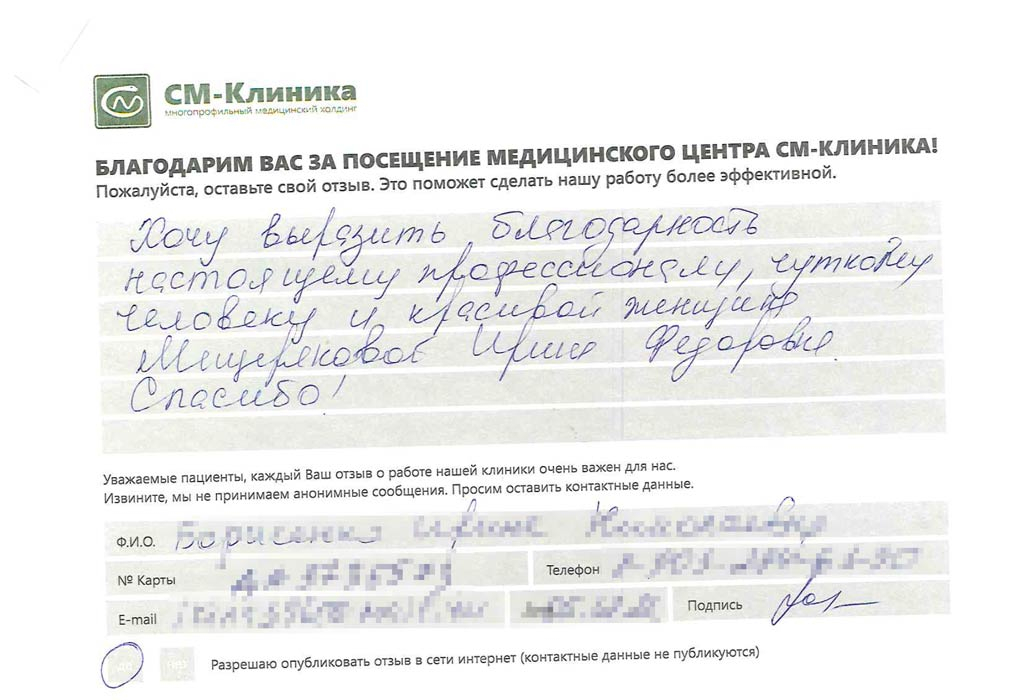 СМ-Клиника
многопрофильный медицинский холдинг
БЛАГОДАРИМ ВАС ЗА ПОСЕЩЕНИЕ МЕДИЦИНСКОГО ЦЕНТРА СМ-КЛИНИКА!
Пожалуйста, оставьте свой отзыв. Это поможет сделать нашу работу более эффективной.
Хочу выразить благодарность
настоящему профессионалу, чуткому
человеку и красивой женщине
Мищеряковой Ирине Федоровне.
Спасибо!
Уважаемые пациенты, каждый Ваш отзыв о работе нашей клиники очень важен для нас.
Извините, мы не принимаем анонимные сообщения. Просим оставить контактные данные.
Ф.И.О.
№ Карты Телефон
E-mail Подпись
да нет Разрешаю опубликовать отзыв в сети интернет (контактные данные не публикуются)